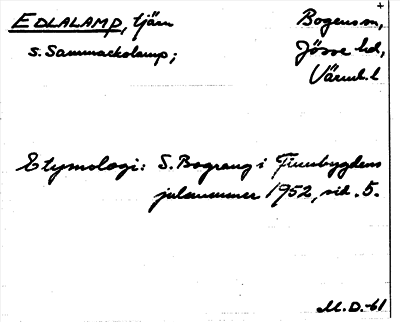 EDLALAMP, tjärn
s. Sammackolamp;
Bogens sn,
Jösse hd,
Värml. l
Etymologi: S. Bograng i Finnbygdens
julnummer 1952, sid. 5.
M.D.-61